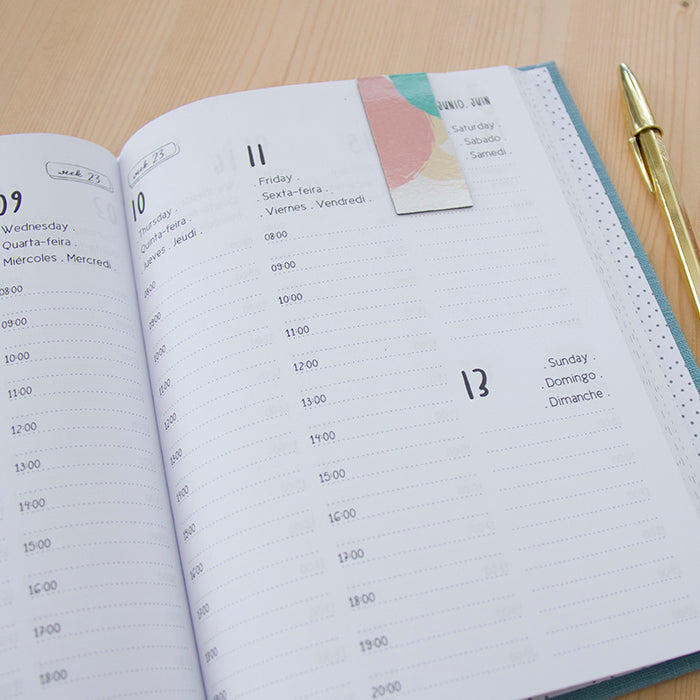 week 23
09
Wednesday .
Quarta-feira .
Miércoles . Mercredi .
08:00
09:00
10:00
11:00
12:00
13:00
14:00
15:00
16:00
17:00
18:00
week 23
10
Thursday .
Quinta-feira .
Jueves . Jeudi .
08:00
09:00
10:00
11:00
12:00
13:00
14:00
15:00
16:00
17:00
18:00
11
. Friday .
. Sexta-feira .
. Viernes . Vendredi .
08:00
09:00
10:00
11:00
12:00
13:00
14:00
15:00
16:00
17:00
18:00
19:00
20:00
JUNIO. JUIN
Saturday .
Sábado .
Samedi .
13
. Sunday .
. Domingo .
. Dimanche .